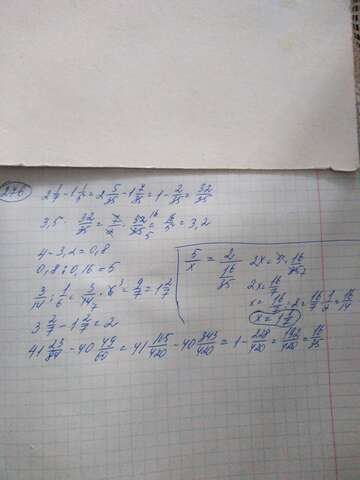 276
2 1/7 - 1 1/5 = 2 5/35 - 1 7/35 = 1 - 2/35 = 32/35
3,5 · 32/35 = 7/2 · 32/35 = 16/5 = 3,2
4 - 3,2 = 0,8
0,8 : 0,16 = 5
3/14 : 1/6 = 3/14 · 6 = 9/7 = 1 2/7
3 2/7 - 1 2/7 = 2
41 23/84 - 40 49/60 = 41 115/420 - 40 343/420 = 1 - 228/420 = 192/420 = 16/35
5/x = 2/(16/35)
2x = 5 · 16/35
2x = 16/7
x = 16/7 : 2 = 16/7 · 1/2 = 16/14
x = 1 1/7